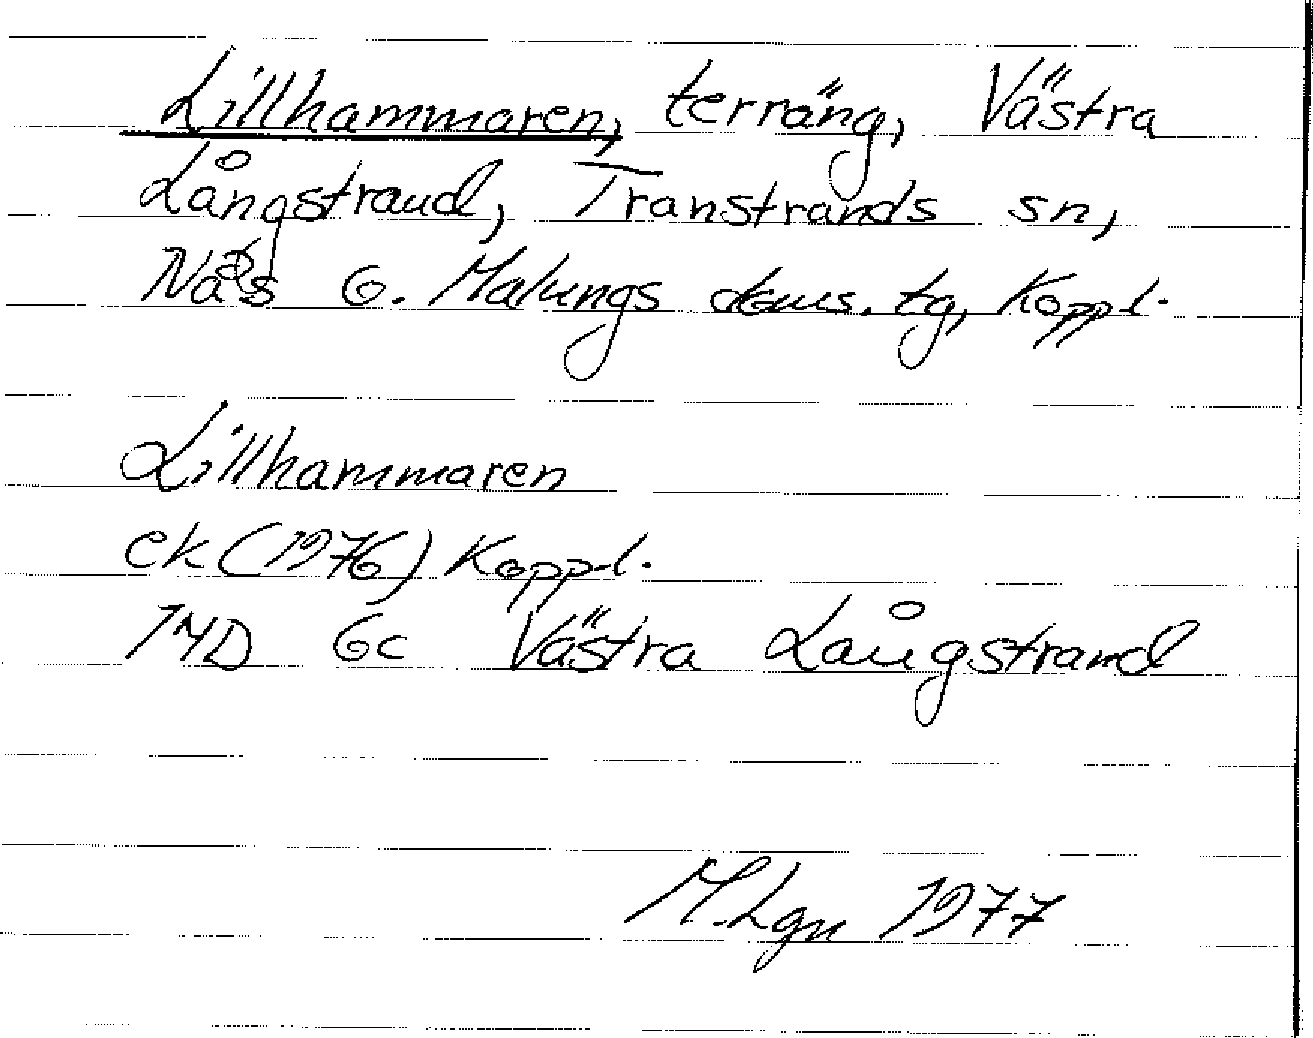 Lillhammaren, terräng, Västra
Långstrand, Transtrands sn,
Nås o. Malungs doms. tg, Koppl.
Lillhammaren
ek (1976) Koppl.
13D 6c Västra Långstrand
M.Lgn 1977